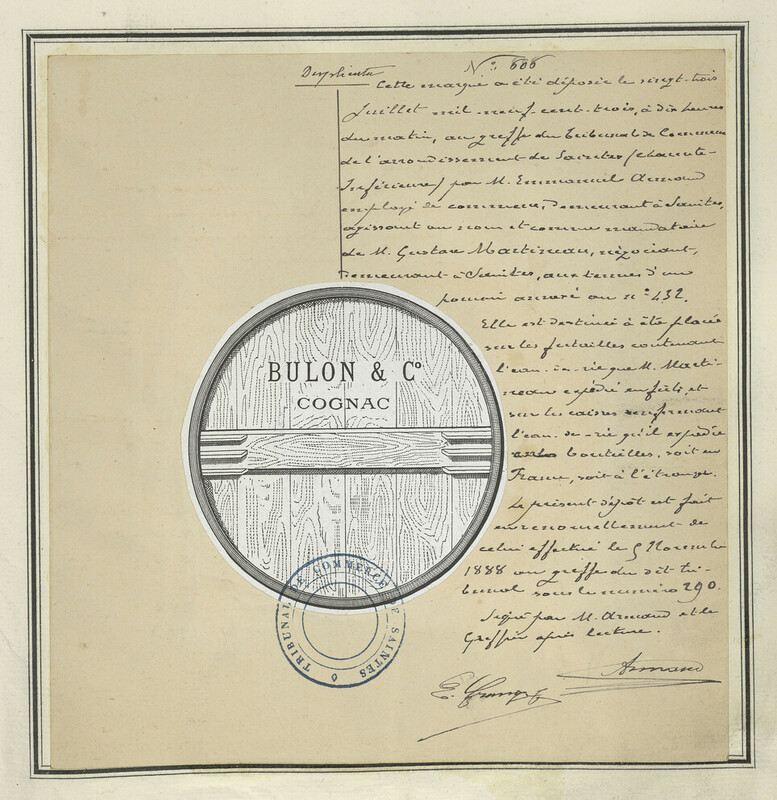 Duplicata
N° 606
Cette marque a été déposée le vingt-trois
Juillet mil neuf cent trois, à dix heures
du matin, au greffe du Tribunal de Commerce
de l'arrondissement de Saintes (Charente-
Inférieure) par M. Emmanuel Armand
employé de commerce, demeurant à Saintes,
agissant au nom et comme mandataire
de M. Gustave Martineau, négociant,
demeurant à Saintes, aux termes d'un
pouvoir annexé au n° 432.
Elle est destinée à être placée
sur les futailles contenant
l'eau-de-vie que M. Marti-
neau expédie en fûts, et
sur les caisses renfermant
l'eau-de-vie qu'il expédie
en bouteilles, soit en
France, soit à l'étranger.
Le présent dépôt est fait
en renouvellement de
celui effectué le 5 Novembre
1888 au greffe du dit tri-
bunal sous le numéro 290.
Signé par M. Armand et le
Greffier après lecture.
Armand
BULON & Co
COGNAC
TRIBUNAL DE COMMERCE DE SAINTES